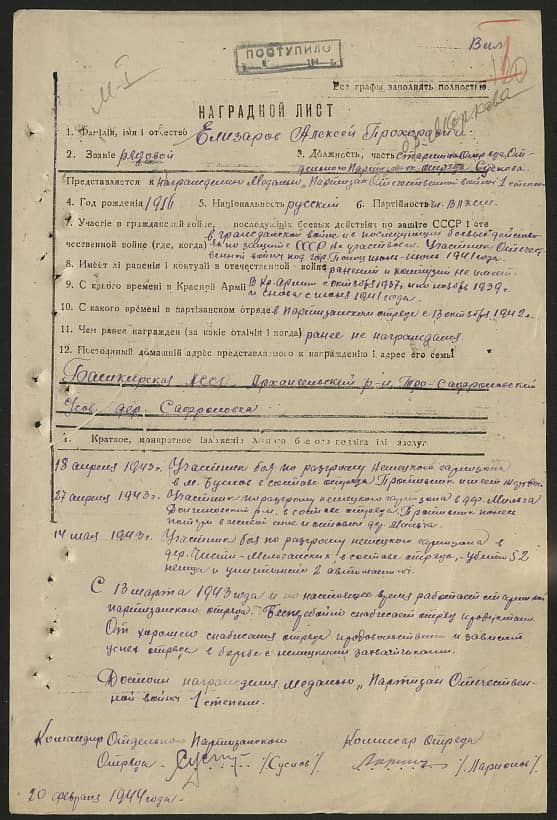 Вил
ПОСТУПИЛО
Все графы заполнять полностью.
М-I
НАГРАДНОЙ ЛИСТ
1. Фамилия, имя и отчество Елизаров Алексей Прохорович
2. Звание рядовой 3. Должность, часть старшина отряда, От-
дельного Партизанского отряда Сускова
Представляется к награждению Медалью "Партизан Отечественной войны" 1 степени
4. Год рождения 5. Национальность русский 6. Партийность
7. Участие в гражданской войне, последующих боевых действиях по защите СССР и оте
чественной войне (где, когда) в гражданской войне и последующих боевых действи-
ях по защите СССР не участвовал. Участник Отечест-
венной войны под гор. 1941 года.
8. Имеет ли ранения и контузии в отечественной войне ранений и контузий не имеет
9. С какого времени в Красной Армии В кр. армии с октября 1937 по ноябрь 1939 г.
и снова с июня 1941 года.
10. С какого времени в партизанском отряде в партизанском отряде с 13 октября 1942 г.
11. Чем ранее награжден (за какие отличия и когда) ранее не награждался
12. Постоянный домашний адрес представляемого к награждению и адрес его семьи
Башкирская АССР Архангельский р-н,
дер. Сафроновка
I. Краткое, конкретное изложение личного боевого подвига или заслуг
18 апреля 1943 г. Участник боя по разгрому немецкого гарнизона
в м. в составе отряда. Противник имел
27 апреля 1943 г. Участник по разгрому немецкого гарнизона в дер.
р-н, в составе отряда. Противник понес
потери в живой силе и оставил дер.
14 мая 1943 г. Участник боя по разгрому немецкого гарнизона в
дер. в составе отряда, убито 52
немца и уничтожено 2 автомашины.
С 13 марта 1943 года и по настоящее время работает старшиной
партизанского отряда. Бесперебойно снабжает отряд продуктами.
От хорошего снабжения отряда продовольствием и зависит
успех отряда в борьбе с немецкими захватчиками.
Достоин награждения медалью "Партизан Отечествен-
ной войны" 1 степени.
Командир Отдельного Партизанского
Отряда
Комиссар Отряда
/Ларионов/
20 февраля 1944 года.